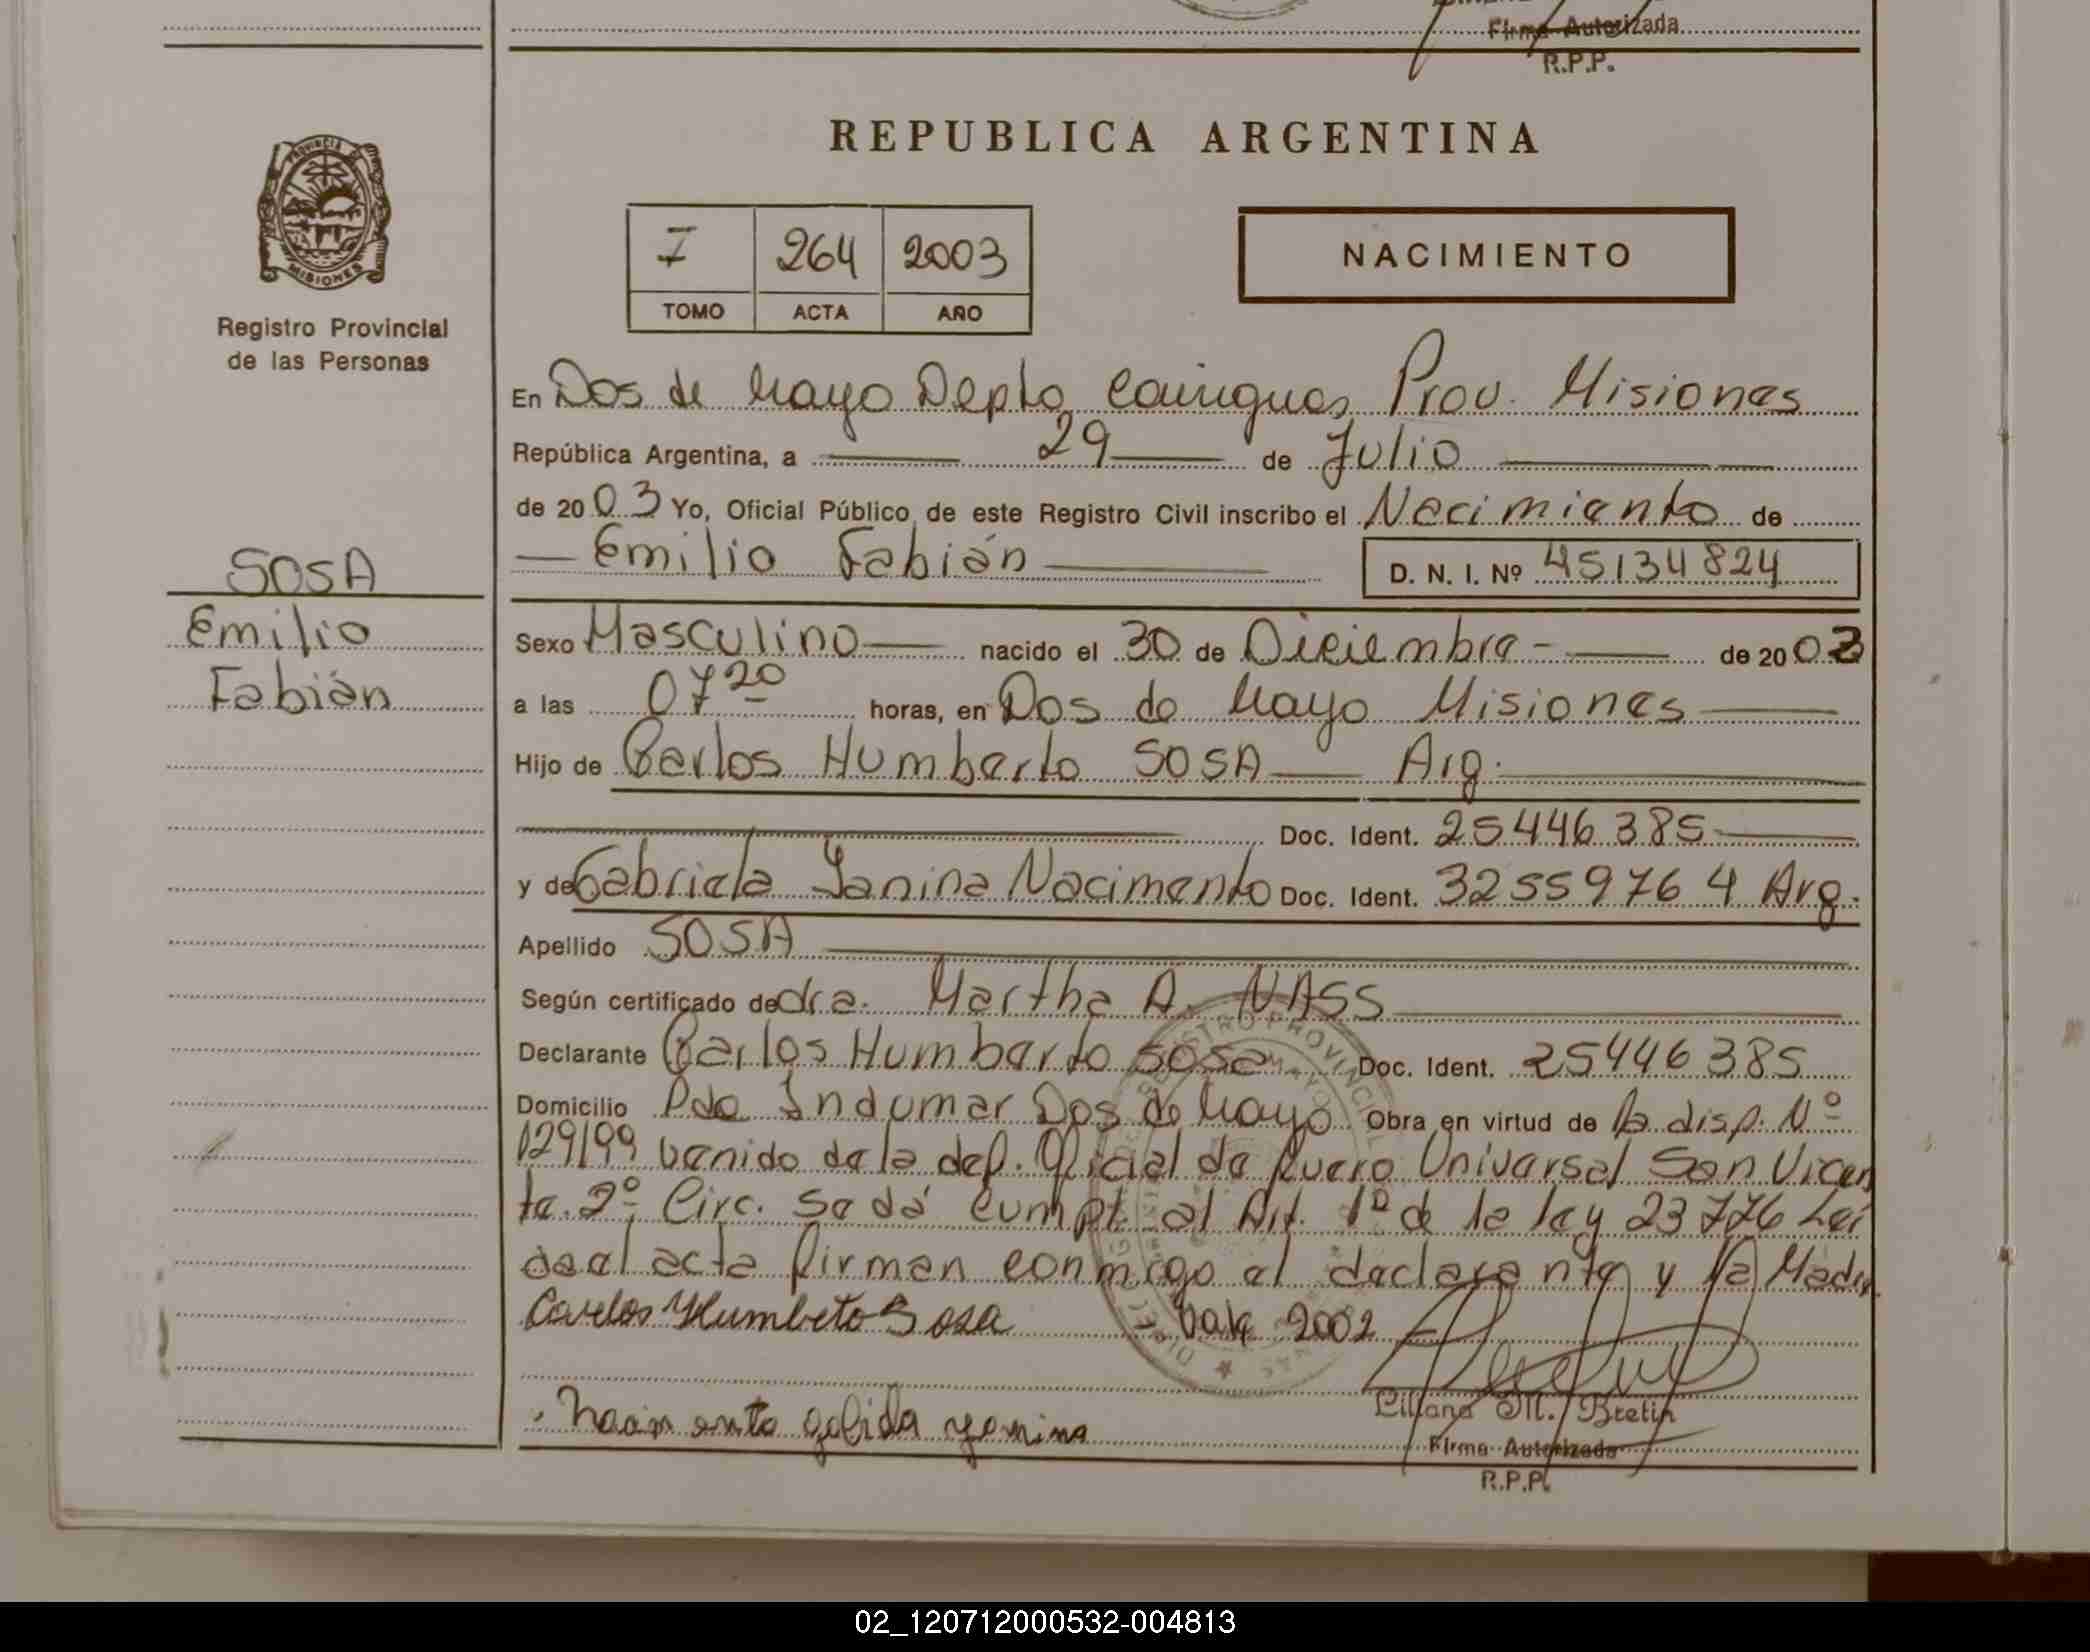 Firma Autorizada
R.P.P.
PROVINCIA DE
MISIONES
Registro Provincial
de las Personas
SOSA
Emilio
Fabián
REPUBLICA ARGENTINA
I 264 2003
TOMO ACTA AÑO
NACIMIENTO
En Dos de Mayo Depto Cainguas Prov. Misiones
República Argentina, a 29 de Julio
de 2003 Yo, Oficial Público de este Registro Civil inscribo el Nacimiento de
Emilio Fabián D. N. I. Nº 45134824
Sexo Masculino nacido el 30 de Diciembre - de 2002
a las 07 20 horas, en Dos de Mayo Misiones
Hijo de Carlos Humberto SOSA Arg.
Doc. Ident. 25446385
y de Gabriela Yanina Nacimento Doc. Ident. 32559764 Arg.
Apellido SOSA
Según certificado de dra. Martha A. NASS
Declarante Carlos Humberto Sosa Doc. Ident. 25446385
Domicilio Pdo Indumar Dos de Mayo Obra en virtud de la disp. Nº
129/99 venido de la def. Oficial de Fuero Universal San Vicen
te. 2º Circ. Se dá cumpl. al Art. 1º de la ley 23776 Leí
da el acta firman conmigo el declarante y la Madre
Carlos Humbeto Sosa Vale 2002
Liliana M. Bretin
Firma Autorizada
R.P.P.
02_120712000532-004813